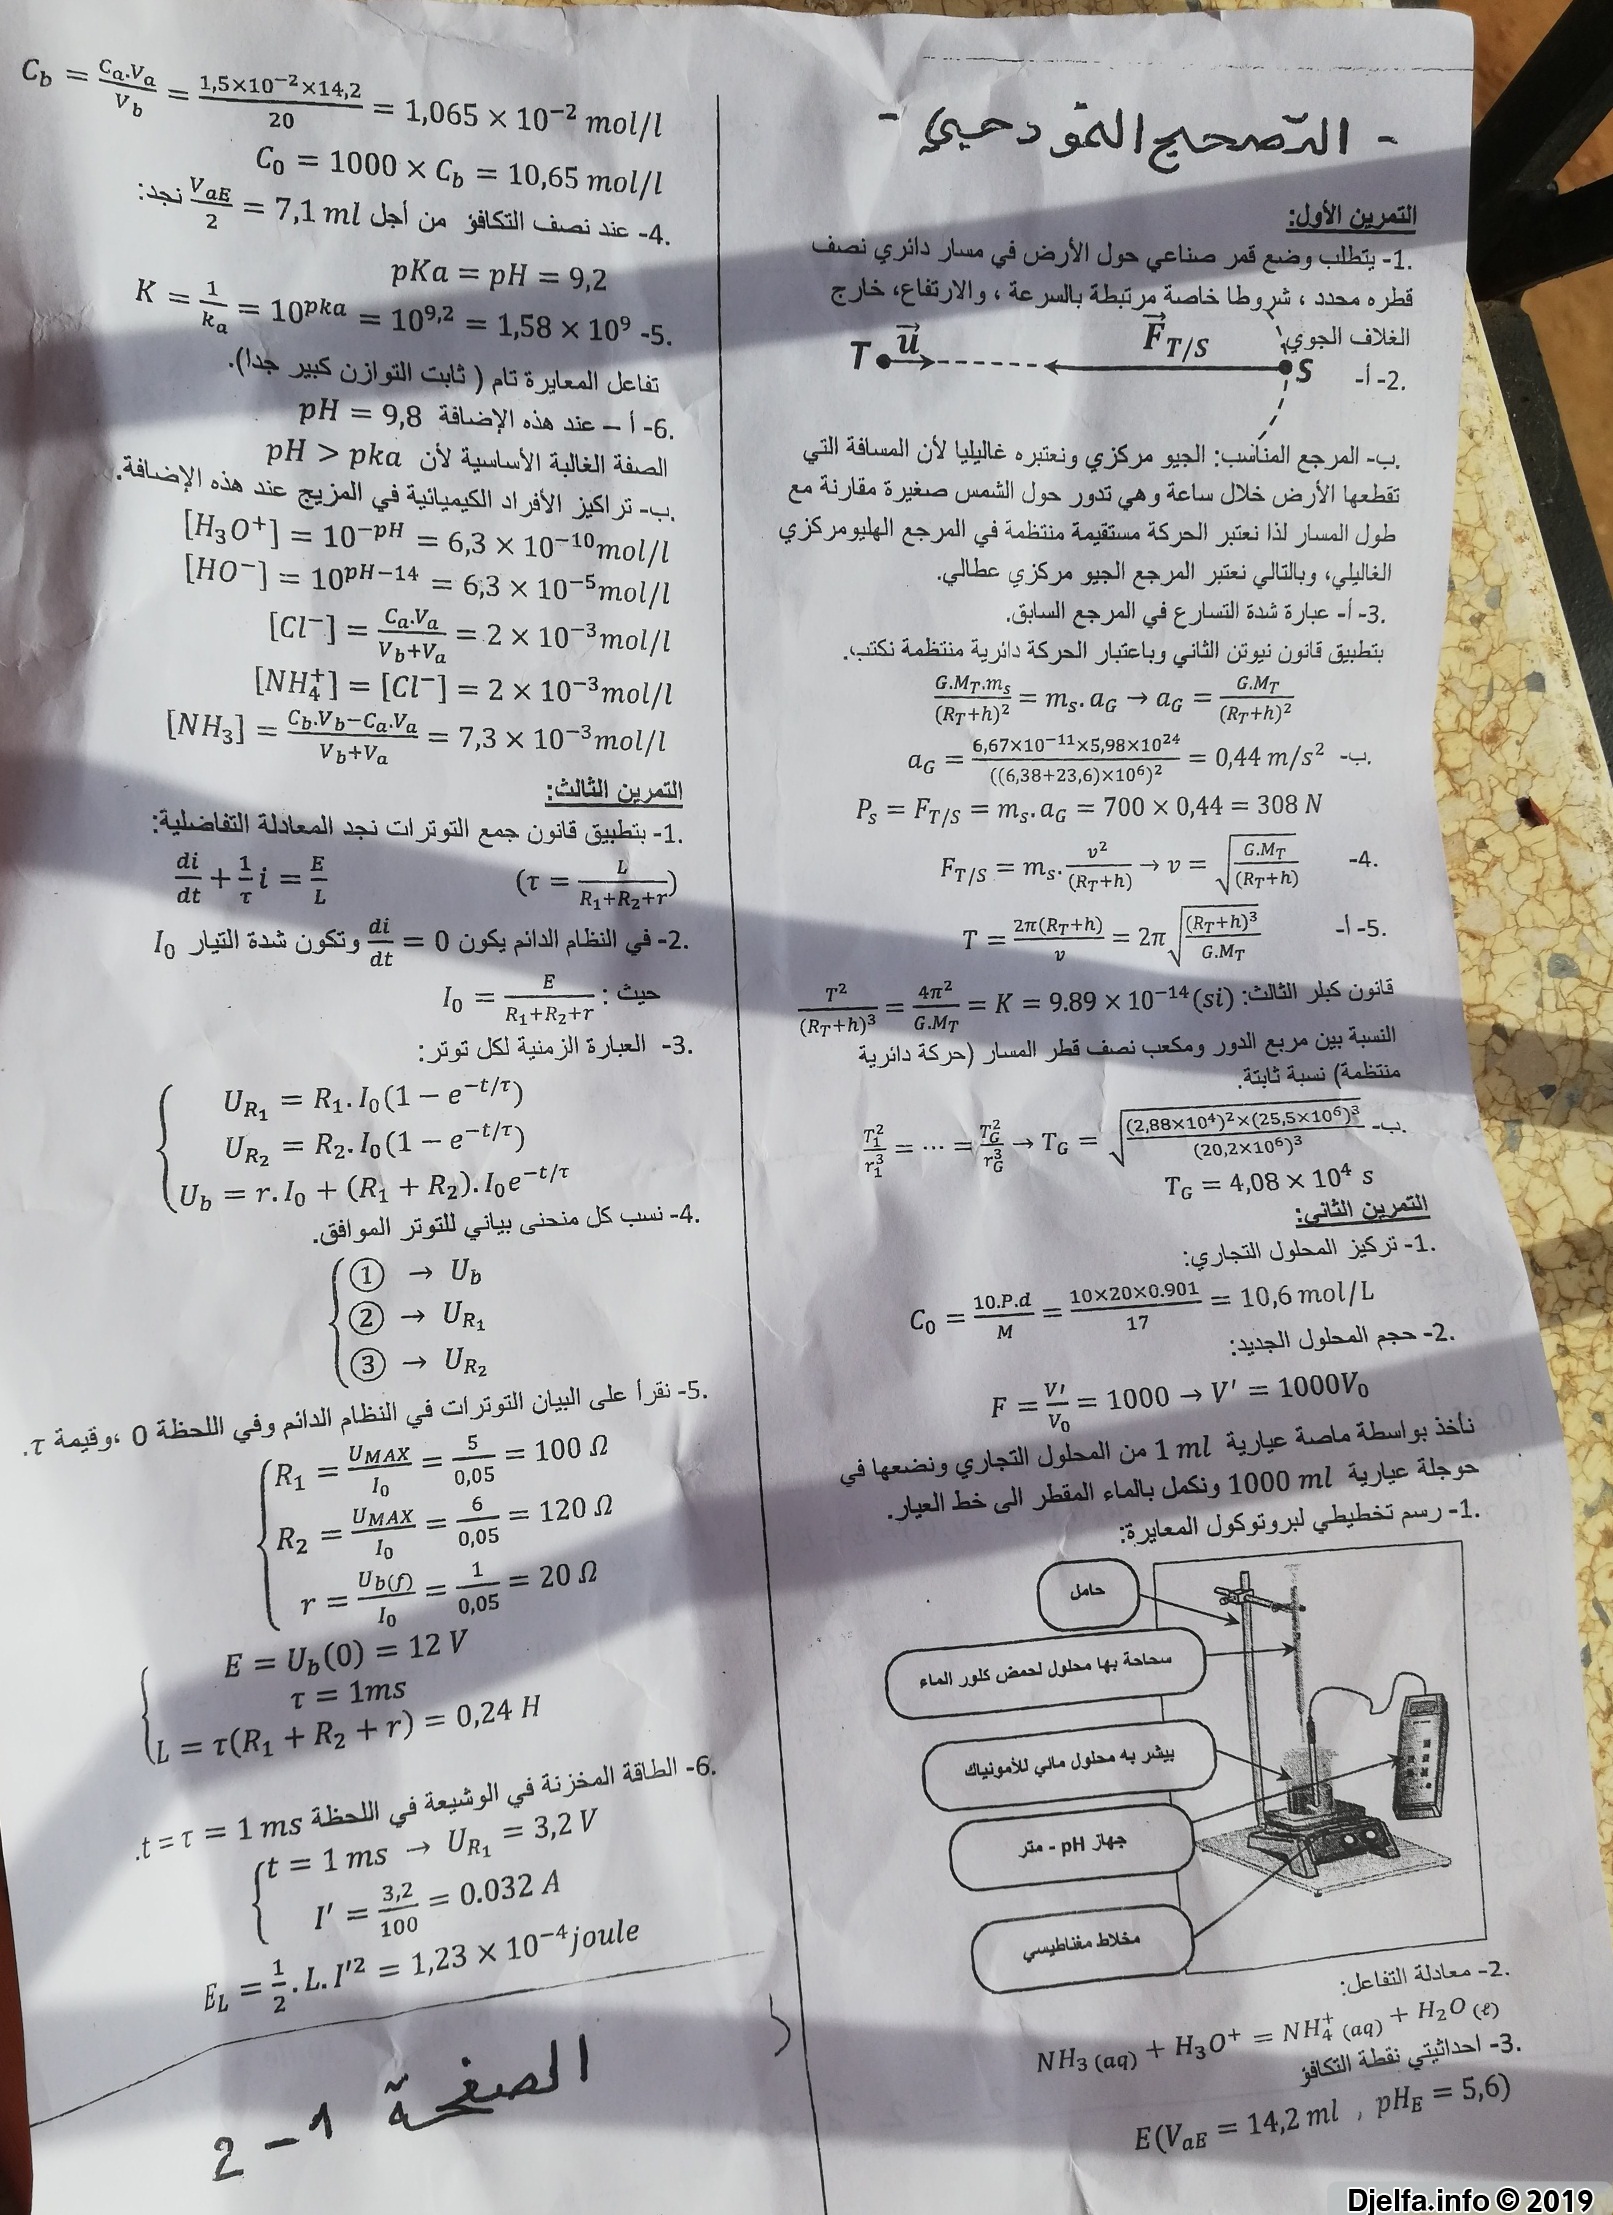 - التصحيح النموذجي -
التمرين الأول:
1- يتطلب وضع قمر صناعي حول الأرض في مسار دائري نصف
قطره محدد ، شروطا خاصة مرتبطة بالسرعة ، والارتفاع، خارج
الغلاف الجوي.
2- أ-
T u⃗ F⃗_{T/S} S
ب- المرجع المناسب: الجيو مركزي ونعتبره غاليليا لأن المسافة التي
تقطعها الأرض خلال ساعة وهي تدور حول الشمس صغيرة مقارنة مع
طول المسار لذا نعتبر الحركة مستقيمة منتظمة في المرجع الهليومركزي
الغاليلي، وبالتالي نعتبر المرجع الجيو مركزي عطالي.
3- أ- عبارة شدة التسارع في المرجع السابق.
بتطبيق قانون نيوتن الثاني وباعتبار الحركة دائرية منتظمة نكتب.
G.M_T.m_s/(R_T+h)² = m_s.a_G → a_G = G.M_T/(R_T+h)²
ب- a_G = 6,67×10⁻¹¹×5,98×10²⁴/((6,38+23,6)×10⁶)² = 0,44 m/s²
P_s = F_{T/S} = m_s.a_G = 700 × 0,44 = 308 N
4- F_{T/S} = m_s.v²/(R_T+h) → v = √(G.M_T/(R_T+h))
5- أ- T = 2π(R_T+h)/v = 2π√((R_T+h)³/G.M_T)
قانون كبلر الثالث: T²/(R_T+h)³ = 4π²/G.M_T = K = 9.89 × 10⁻¹⁴(si)
النسبة بين مربع الدور ومكعب نصف قطر المسار (حركة دائرية
منتظمة) نسبة ثابتة.
ب- T₁²/r₁³ = ⋯ = T_G²/r_G³ → T_G = √((2,88×10⁴)²×(25,5×10⁶)³/(20,2×10⁶)³)
T_G = 4,08 × 10⁴ s
التمرين الثاني:
1- تركيز المحلول التجاري:
C₀ = 10.P.d/M = 10×20×0.901/17 = 10,6 mol/L
2- حجم المحلول الجديد:
F = V′/V₀ = 1000 → V′ = 1000V₀
نأخذ بواسطة ماصة عيارية 1 ml من المحلول التجاري ونضعها في
حوجلة عيارية 1000 ml ونكمل بالماء المقطر الى خط العيار.
1- رسم تخطيطي لبروتوكول المعايرة:
حامل
سحاحة بها محلول لحمض كلور الماء
بيشر به محلول مائي للأمونياك
جهاز pH - متر
مخلاط مغناطيسي
2- معادلة التفاعل:
NH₃ (aq) + H₃O⁺ = NH₄⁺ (aq) + H₂O (ℓ)
3- احداثيتي نقطة التكافؤ
E(V_aE = 14,2 ml , pH_E = 5,6)
C_b = C_a.V_a/V_b = 1,5×10⁻²×14,2/20 = 1,065 × 10⁻² mol/l
C₀ = 1000 × C_b = 10,65 mol/l
4- عند نصف التكافؤ من أجل V_aE/2 = 7,1 ml نجد:
pKa = pH = 9,2
5- K = 1/k_a = 10^{pka} = 10^{9,2} = 1,58 × 10⁹
تفاعل المعايرة تام ( ثابت التوازن كبير جدا).
6- أ – عند هذه الإضافة pH = 9,8
الصفة الغالبة الأساسية لأن pH > pka
ب- تراكيز الأفراد الكيميائية في المزيج عند هذه الإضافة.
[H₃O⁺] = 10^{−pH} = 6,3 × 10⁻¹⁰mol/l
[HO⁻] = 10^{pH−14} = 6,3 × 10⁻⁵mol/l
[Cl⁻] = C_a.V_a/(V_b+V_a) = 2 × 10⁻³mol/l
[NH₄⁺] = [Cl⁻] = 2 × 10⁻³mol/l
[NH₃] = (C_b.V_b−C_a.V_a)/(V_b+V_a) = 7,3 × 10⁻³mol/l
التمرين الثالث:
1- بتطبيق قانون جمع التوترات نجد المعادلة التفاضلية:
di/dt + (1/τ) i = E/L (τ = L/(R₁+R₂+r))
2- في النظام الدائم يكون di/dt = 0 وتكون شدة التيار I₀
حيث : I₀ = E/(R₁+R₂+r)
3- العبارة الزمنية لكل توتر:
U_{R₁} = R₁.I₀(1 − e^{−t/τ})
U_{R₂} = R₂.I₀(1 − e^{−t/τ})
U_b = r.I₀ + (R₁ + R₂).I₀e^{−t/τ}
4- نسب كل منحنى بياني للتوتر الموافق.
① → U_b
② → U_{R₁}
③ → U_{R₂}
5- نقرأ على البيان التوترات في النظام الدائم وفي اللحظة 0 ،وقيمة τ.
R₁ = U_MAX/I₀ = 5/0,05 = 100 Ω
R₂ = U_MAX/I₀ = 6/0,05 = 120 Ω
r = U_b(f)/I₀ = 1/0,05 = 20 Ω
E = U_b(0) = 12 V
τ = 1ms
L = τ(R₁ + R₂ + r) = 0,24 H
6- الطاقة المخزنة في الوشيعة في اللحظة t = τ = 1 ms.
t = 1 ms → U_{R₁} = 3,2 V
I′ = 3,2/100 = 0.032 A
E_L = 1/2.L.I′² = 1,23 × 10⁻⁴joule
الصفحة 1 - 2
Djelfa.info © 2019